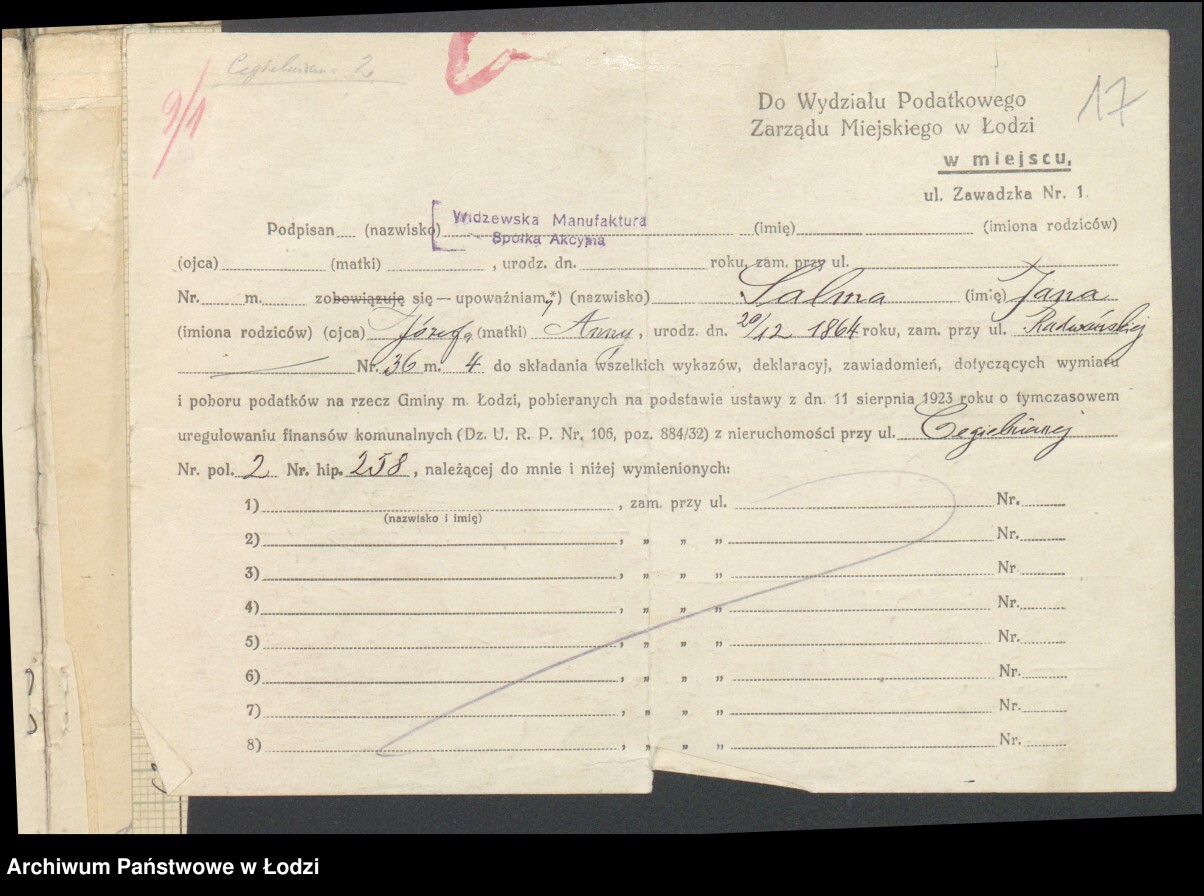 Cegielniana 2
9/1
17
Do Wydziału Podatkowego
Zarządu Miejskiego w Łodzi
w miejscu,
ul. Zawadzka Nr. 1.
Widzewska Manufaktura
Spółka Akcyjna
Podpisan (nazwisko) (imię) (imiona rodziców)
(ojca) (matki) , urodz. dn. roku, zam. przy ul.
Nr. m. zobowiązuję się — upoważniam,*) (nazwisko) Salma (imię) Jana
(imiona rodziców) (ojca) Józefa (matki) Anny, urodz. dn. 20/12 1864 roku, zam. przy ul. Radwańskiej
Nr. 36 m. 4 do składania wszelkich wykazów, deklaracyj, zawiadomień, dotyczących wymiaru
i poboru podatków na rzecz Gminy m. Łodzi, pobieranych na podstawie ustawy z dn. 11 sierpnia 1923 roku o tymczasowem
uregulowaniu finansów komunalnych (Dz. U. R. P. Nr. 106, poz. 884/32) z nieruchomości przy ul. Cegielnianej
Nr. pol. 2 Nr. hip. 258, należącej do mnie i niżej wymienionych:
1) , zam. przy ul. Nr.
(nazwisko i imię)
2) , „ „ „ Nr.
3) , „ „ „ Nr.
4) , „ „ „ Nr.
5) , „ „ „ Nr.
6) , „ „ „ Nr.
7) , „ „ „ Nr.
8) , „ „ „ Nr.
Archiwum Państwowe w Łodzi